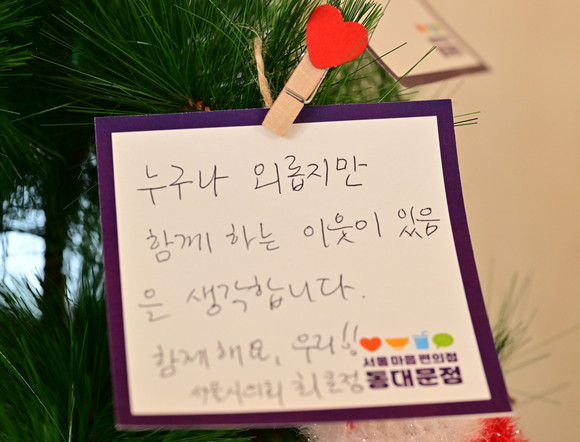 누구나 외롭지만
함께 하는 이웃이 있음
을 생각합니다.
함께해요, 우리!!
서울 마음 편의점
동대문점